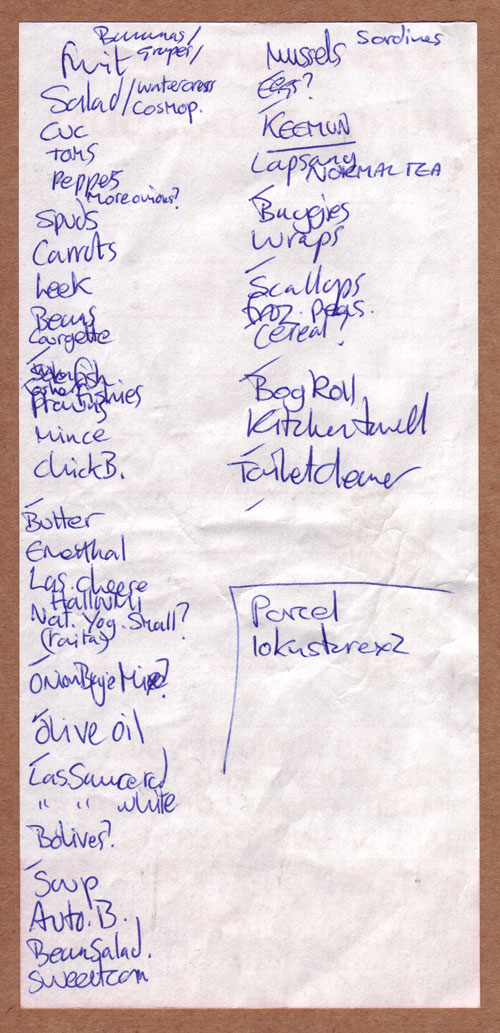 Bananas/
Fruit Grapes/
Salad/watercress
cosmop.
CUC
TOMS
Peppes
More ovious?
Spuds
Carrots
Leek
Beans
Courgette
Prawns Fishies
Mince
chick B.
Butter
Emesthal
Las. cheese
Halloumi
Nat. Yog. Small?
(raita)
Onion Baje Mix?
Olive oil
Las Sauce red
" " white
Bolives?
Soup
Auto. B.
Bean Salad.
Sweetcorn
Mussels Sardines
Eggs?
KEEMUN
Lapsang
NORMAL TEA
Baggies
Wraps
Scallops
Froz. Peas.
Cereal?
Bog Roll
Kitchen towell
Toilet cleaner
Parcel